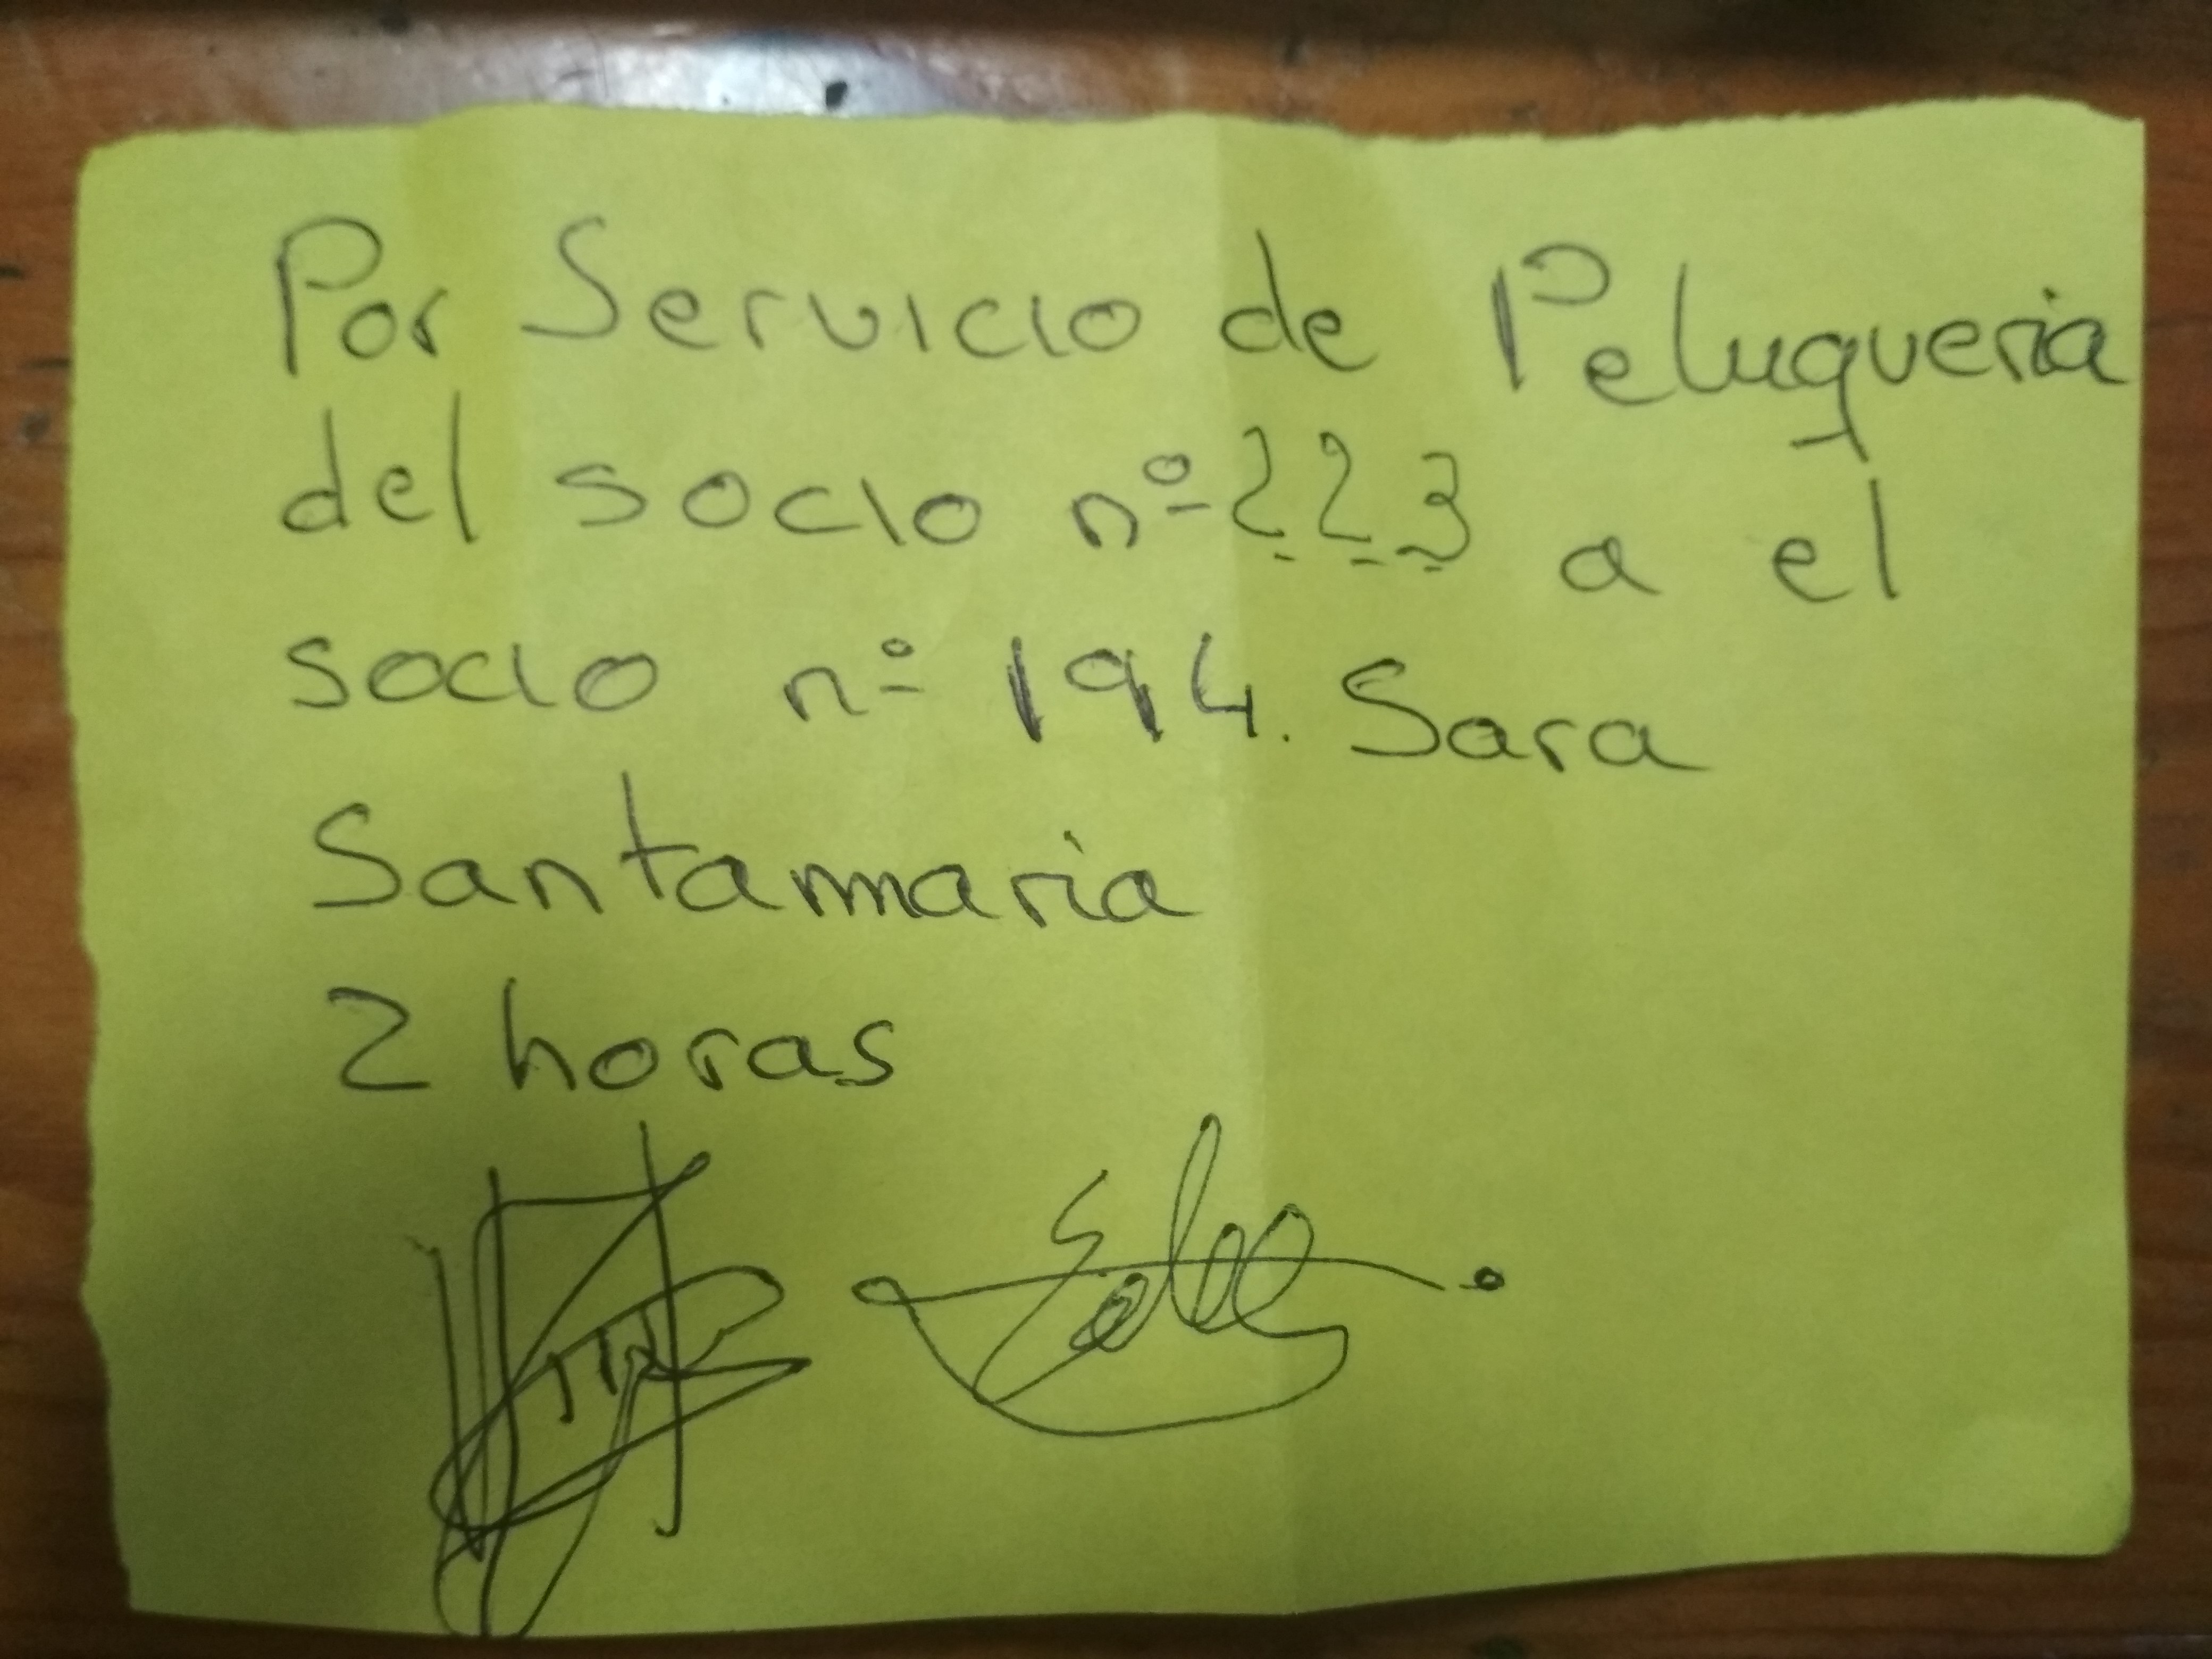 Por Servicio de Peluqueria
del socio nº 223 a el
socio nº 194. Sara
Santamaria
2 horas